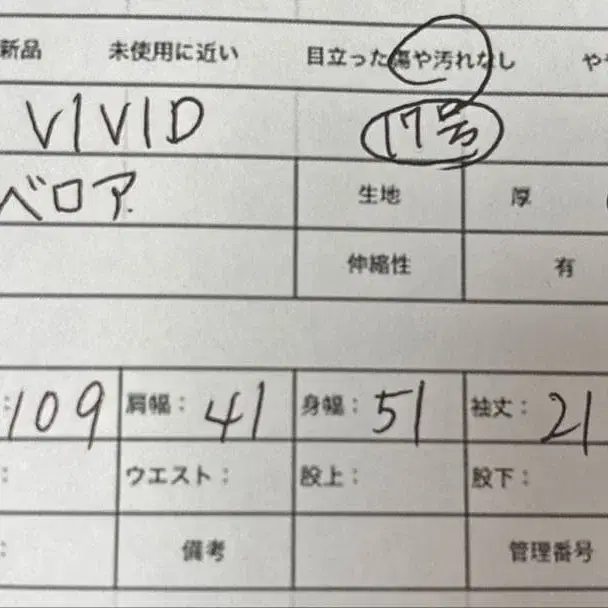 新品 未使用に近い 目立った傷や汚れなし や
VIVID 17号
ベロア 生地 厚
伸縮性 有
:109 肩幅: 41 身幅: 51 袖丈: 21
: ウエスト: 股上: 股下:
: 備考 管理番号